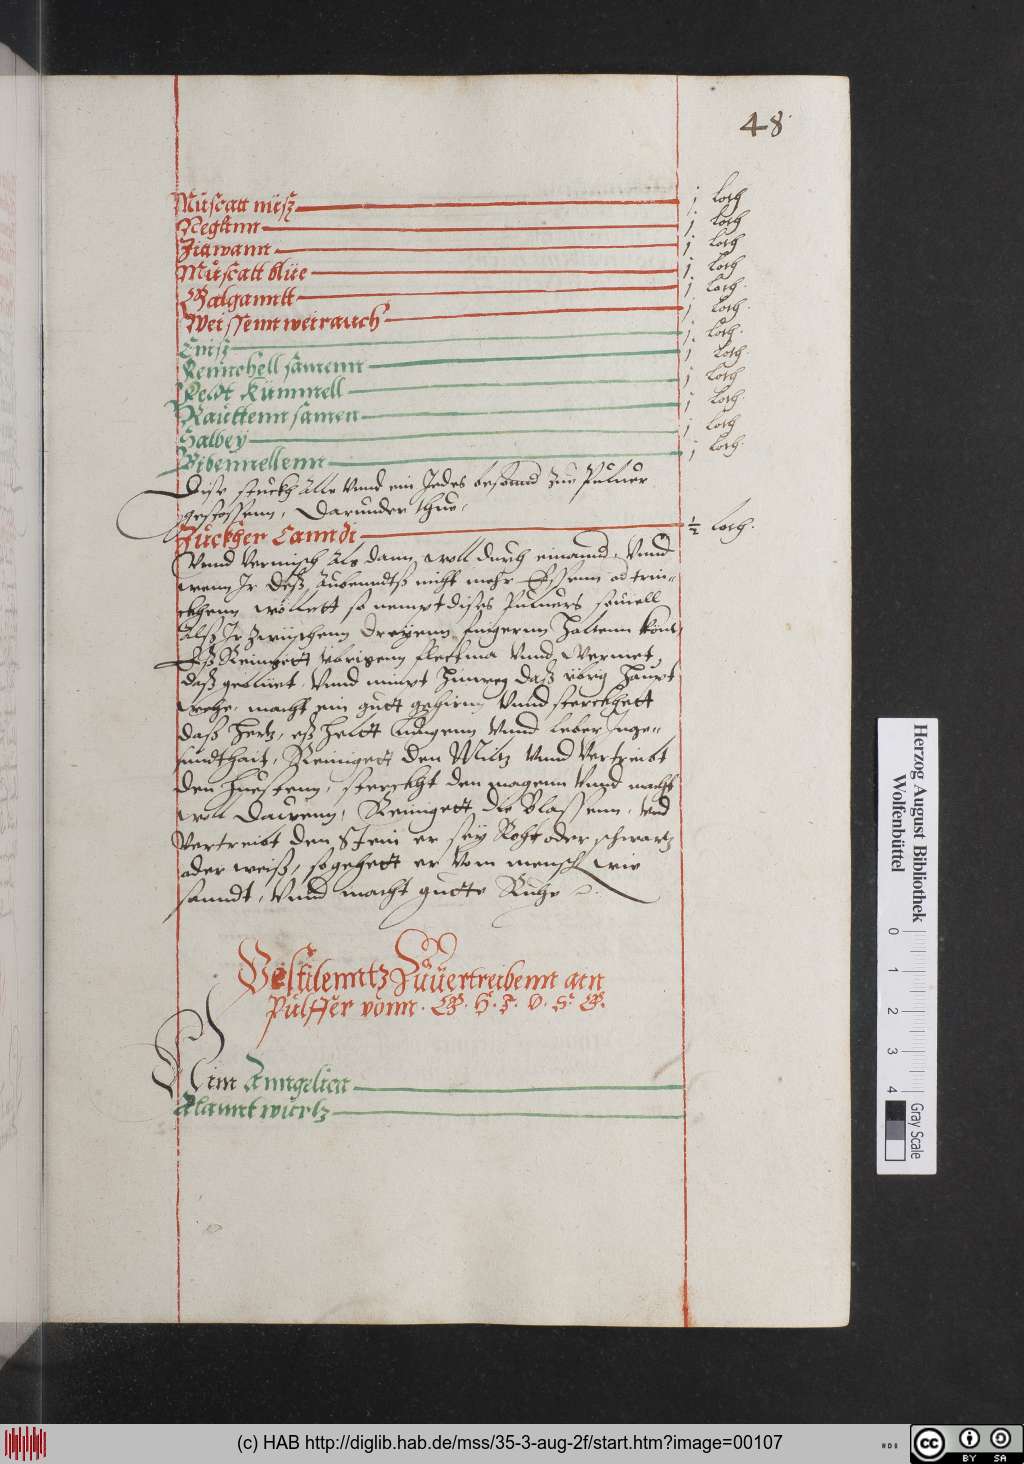 48
Muscatt nüsz j loth
Neglinn j. loth
Zittwann j loth
Muscatt blüe j loth
Galganntt j loth.
Weissenn weirauch j loth.
Eniß j. loth.
Fennchell samenn j loth.
Feldt Kümmell j loth
Rauttenn samen j loth.
Salbey j loth
Bibennellenn j loth.
Dise stuckh alle vnnd ein Jedes besonnd zue Puluer
gestossenn, Darunder thue.
Zuckher Canndi ½ loth.
Vnnd vermisch als dann woll durch einannd, Vnnd
wenn Jr deß Aubenndtß nicht mehr Essenn od trin=
ckhenn wöllett so nempt dises Puluers souiell
Alß Jr zwüschenn dreyenn fingernn haltenn könt,
Eß Reinigett übrigenn fleckma vnnd Wermet
daß geblüet, Vnnd nimpt hinweg daß übrig haupt
wehe, macht ein gutt gehirnn vnnd sterckhett
daß hertz, eß heltt lungenn vnnd leber Jnge=
sundthait, Reinigett den Miltz vnnd Vertreibt
den huestenn, sterckht den magenn vnnd macht
woll dauwenn, Reinigett die Blassenn, vnd
Vertreibt den Stein er sey Roht oder schwartz
oder weiß, so gehett er vom mensch wie
sanndt, vnnd macht gutte Ruhe
Pestilenntz Zuuertreibenn ain
Pulffer vonn. G. H. P. O. H. G.
Nim Anngelica
Alannt wurtz
Herzog August Bibliothek
Wolfenbüttel
0 1 2 3 4
Gray Scale
(c) HAB http://diglib.hab.de/mss/35-3-aug-2f/start.htm?image=00107
cc BY SA